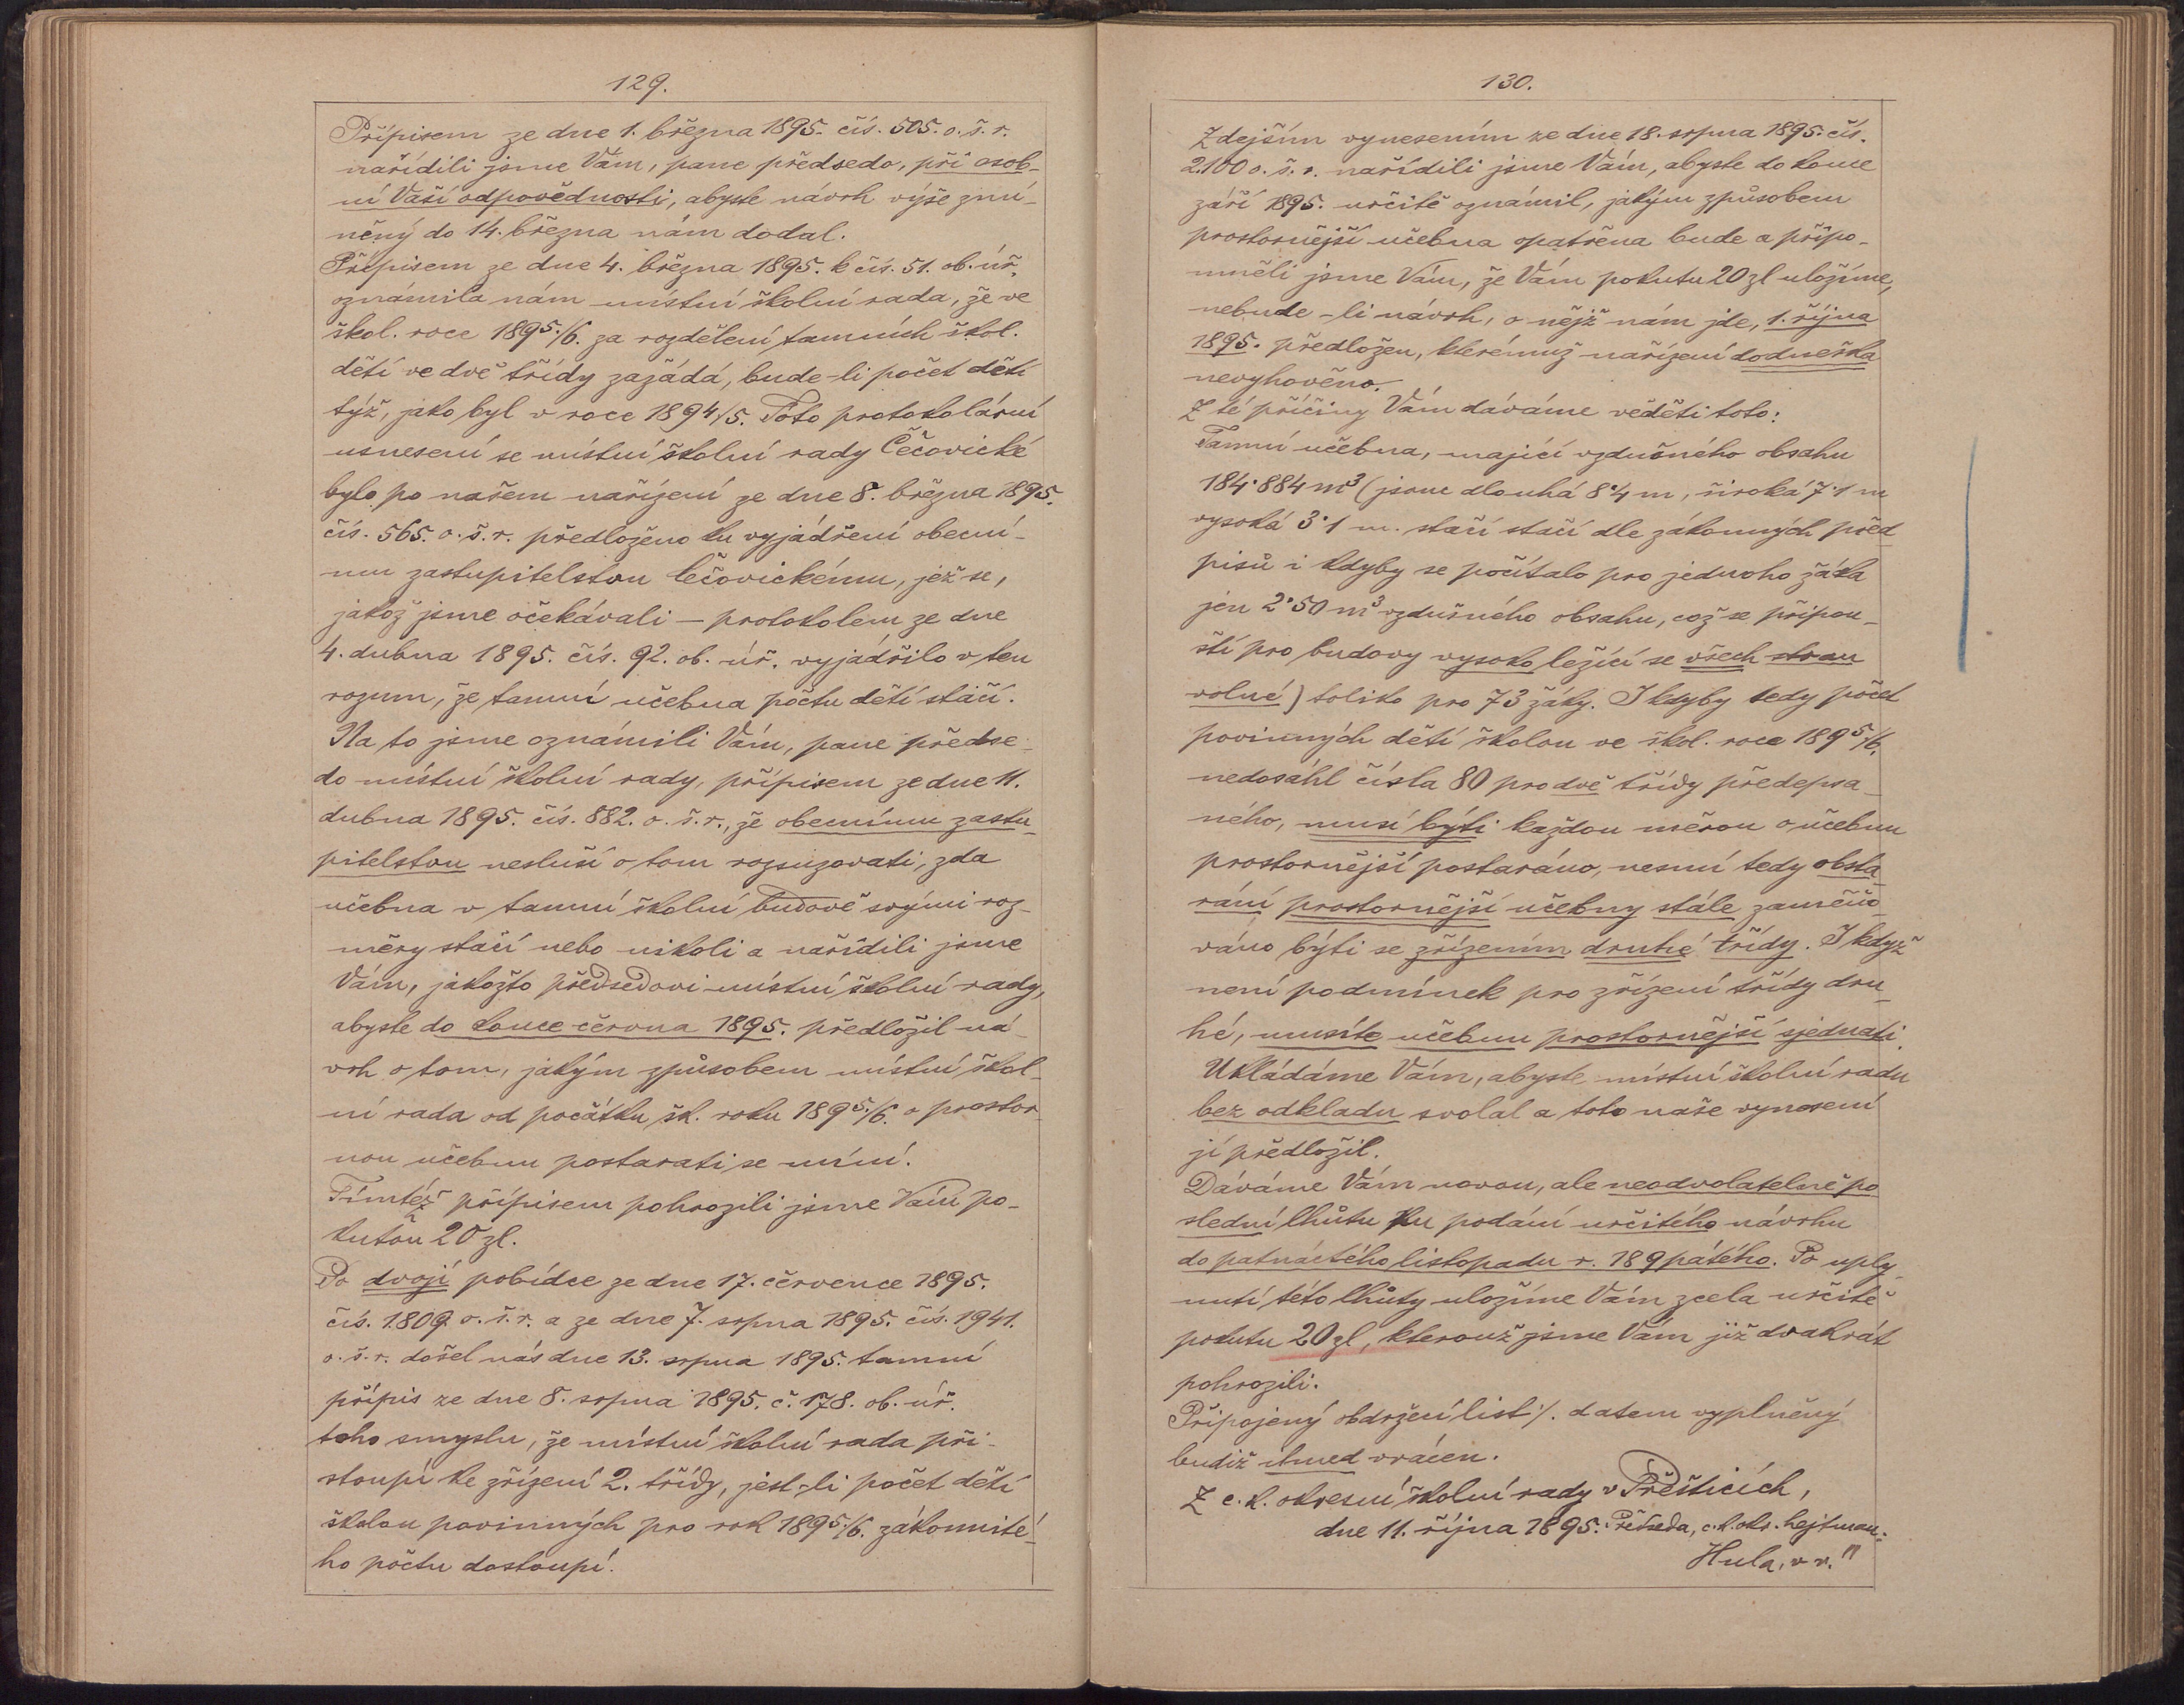 129.
Přípisem ze dne 1. března 1895. čís. 505. o. š. r.
nařídili jsme Vám, pane předsedo, při osob-
ní Vaší odpovědnosti, abyste návrh výše zmí-
něný do 14. března nám dodal.
Přípisem ze dne 4. března 1895. k čís. 51. ob. úř.
oznámila nám místní školní rada, že ve
škol. roce 1895/6. za rozdělení tamních škol.
dětí ve dvě třídy zažádá, bude-li počet dětí
týž, jako byl v roce 1894/5. Toto protokolární
usnesení se místní školní rady Čečovické
bylo po našem nařízení ze dne 8. března 1895.
čís. 565. o. š. r. předloženo ku vyjádření obecní-
mu zastupitelstvu Čečovickému, jež se,
jakož jsme očekávali — protokolem ze dne
4. dubna 1895. čís. 92. ob. úř. vyjádřilo v ten
rozum, že tamní učebna počtu dětí stačí.
Na to jsme oznámili Vám, pane předse-
do místní školní rady, přípisem ze dne 11.
dubna 1895. čís. 882. o. š. r., že obecnímu zastu-
pitelstvu nesluší o tom rozsuzovati, zda
učebna v tamní školní budově svými roz-
měry stačí nebo nikoli a nařídili jsme
Vám, jakožto předsedovi místní školní rady,
abyste do konce června 1895. předložil ná-
vrh o tom, jakým způsobem místní škol-
ní rada od počátku šk. roku 1895/6. o prostor-
nou učebnu postarati se míní.
Tímtéž přípisem pohrozili jsme Vám po-
kutou 20 zl.
Po dvojí pobídce ze dne 17. července 1895.
čís. 1.809. o. š. r. a ze dne 7. srpna 1895. čís. 1941.
o. š. r. došel nás dne 13. srpna 1895. tamní
přípis ze dne 8. srpna 1895. č. 178. ob. úř.
toho smyslu, že místní školní rada při-
stoupí ke zřízení 2. třídy, jest-li počet dětí
školou povinných pro rok 1895/6. zákonnité-
ho počtu dostoupí.
130.
Zdejším vynesením ze dne 18. srpna 1895. čís.
2.100 o. š. r. nařídili jsme Vám, abyste do konce
září 1895. určitě oznámil, jakým způsobem
prostornější učebna opatřena bude a připo-
mněli jsme Vám, že Vám pokutu 20 zl uložíme,
nebude-li návrh, o nějž nám jde, 1. října
1895. předložen, kterémuž nařízení dodneška
nevyhověno.
Z té příčiny Vám dáváme věděti toto:
Tamní učebna, mající vzdušného obsahu
184·884 m³ (jsouc dlouhá 8·4 m, široká 7·1 m
vysoká 3·1 m. stačí stačí dle zákonných před-
pisů i kdyby se počítalo pro jednoho žáka
jen 2·50 m³ vzdušného obsahu, což se připou-
ští pro budovy vysoko ležící se všech stran
volné) toliko pro 73 žáky. I kdyby tedy počet
povinných dětí školou ve škol. roce 1895/6.
nedosáhl čísla 80 pro dvě třídy předepsa-
ného, musí býti každou měrou o učebnu
prostornější postaráno, nesmí tedy obsta-
rání prostornější učebny stále zaměňo-
váno býti se zřízením druhé třídy. I když
není podmínek pro zřízení třídy dru-
hé, musíte učebnu prostornější sjednati.
Ukládáme Vám, abyste místní školní radu
bez odkladu svolal a toto naše vynesení
jí předložil.
Dáváme Vám novou, ale neodvolatelně po
slední lhůtu ku podání určitého návrhu
do patnáctého listopadu r. 189pátého. Po uply-
nutí této lhůty uložíme Vám zcela určitě
pokutu 20 zl, kterouž jsme Vám již dvakrát
pohrozili.
Připojený obdržecí list ·/. datem vyplněný
budiž ihned vrácen.
Z c. k. okresní školní rady v Přešticích,
dne 11. října 1895. Předseda, c. k. okr. hejtman:
Hula, v r."